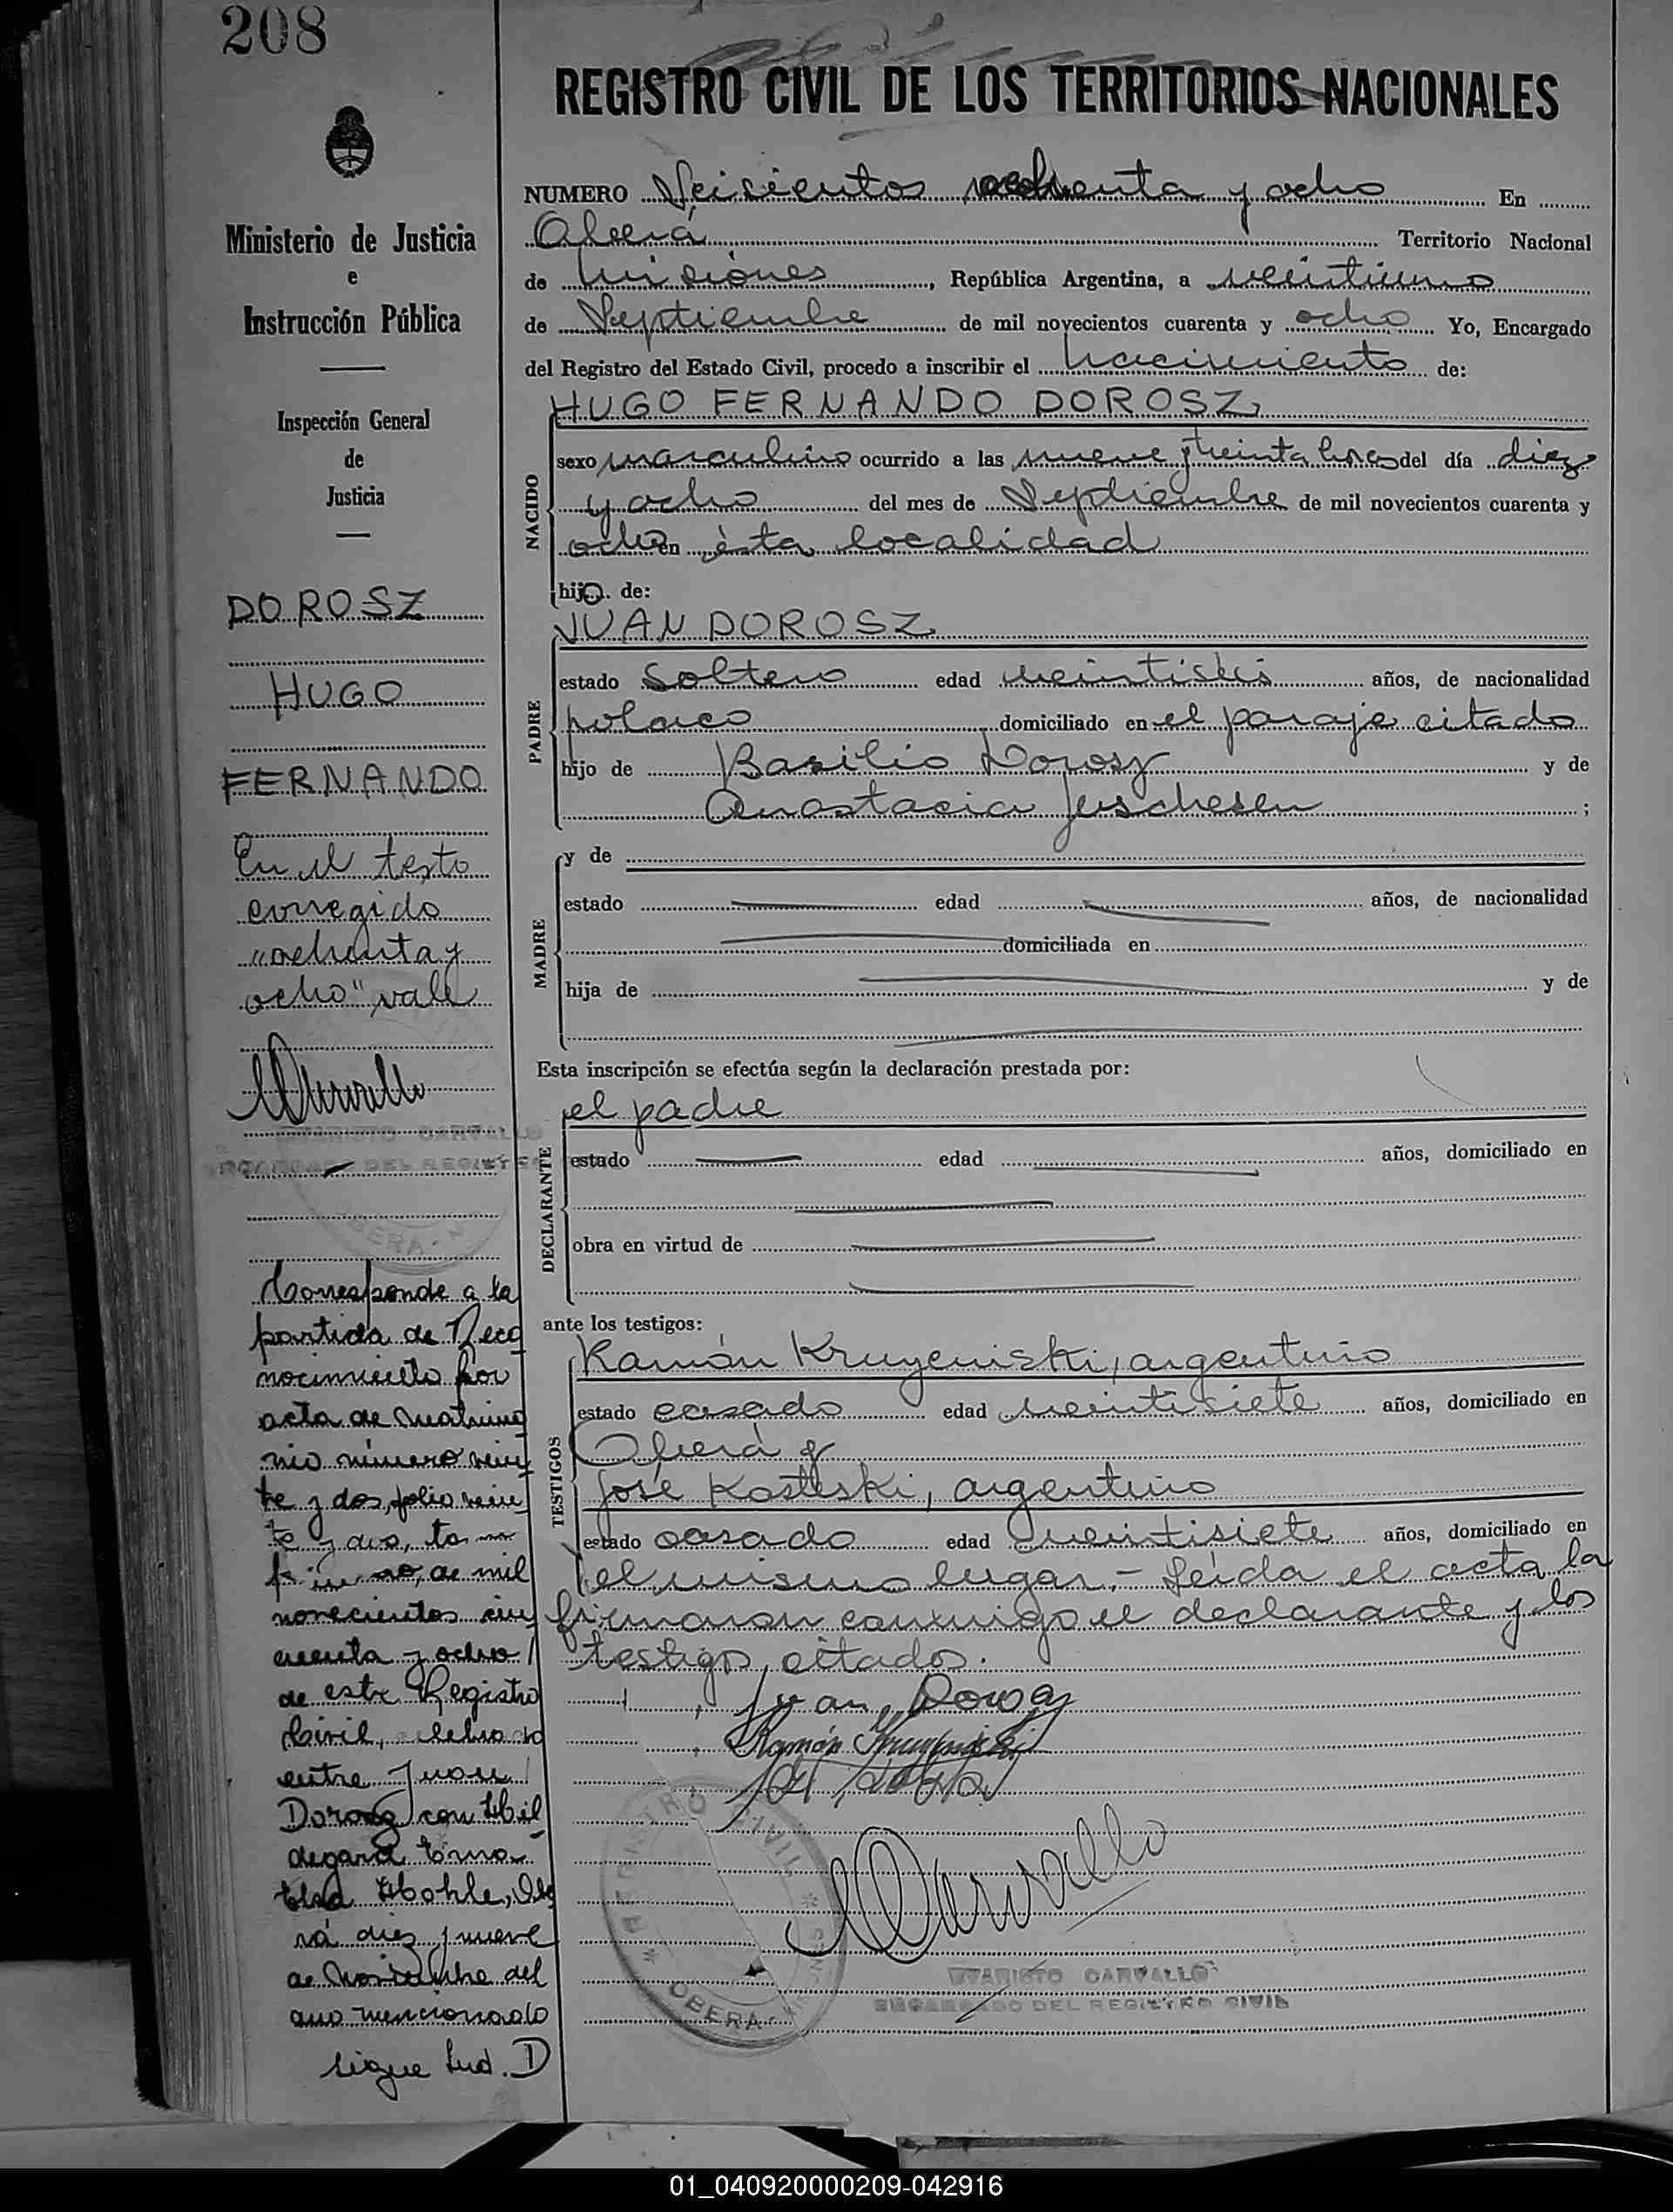 208
REGISTRO CIVIL DE LOS TERRITORIOS NACIONALES
Ministerio de Justicia
e
Instrucción Pública
Inspección General
de
Justicia
DOROSZ
HUGO
FERNANDO
En el texto
corregido
"ochenta y
ocho" vale
EVARISTO CARVALLO
ENCARGADO DEL REGISTRO
OBERA
Corresponde a la
partida de Reco
nocimiento por
acta de Matrimo
nio número vein
te y dos, folio vein
te y dos, tomo
primero, de mil
novecientos cin
cuenta y ocho
de este Registro
Civil, celebrado
entre Juan
Dorosz con Hil
degard Erna
Elsa Hohle, Obe
rá diez y nueve
de Noviembre del
año mencionado
sigue Ind. D
NUMERO Seiscientos ochenta y ocho En
Oberá Territorio Nacional
de Misiones, República Argentina, a veintiuno
de Septiembre de mil novecientos cuarenta y ocho Yo, Encargado
del Registro del Estado Civil, procedo a inscribir el nacimiento de:
HUGO FERNANDO DOROSZ
NACIDO
sexo masculino ocurrido a las nueve y treinta horas del día diez
y ocho del mes de Septiembre de mil novecientos cuarenta y
ocho en ésta localidad
hijo de:
JUAN DOROSZ
PADRE
estado soltero edad veintiséis años, de nacionalidad
polaco domiciliado en el paraje citado
hijo de Basilio Dorosz y de
Anastacia Juschesen ;
MADRE
y de
estado edad años, de nacionalidad
domiciliada en
hija de y de
Esta inscripción se efectúa según la declaración prestada por:
el padre
DECLARANTE
estado edad años, domiciliado en
obra en virtud de
ante los testigos:
TESTIGOS
Ramón Kruyeniski, argentino
estado casado edad veintisiete años, domiciliado en
Oberá y
José Kosteski, argentino
estado casado edad veintisiete años, domiciliado en
el mismo lugar.- Leída el acta la
firmaron conmigo el declarante y los
testigos citados.
Juan Dorosz
Ramón Kruyeniski
Carvallo
REGISTRO CIVIL
OBERA MISIONES
EVARISTO CARVALLO
ENCARGADO DEL REGISTRO CIVIL
01_040920000209-042916